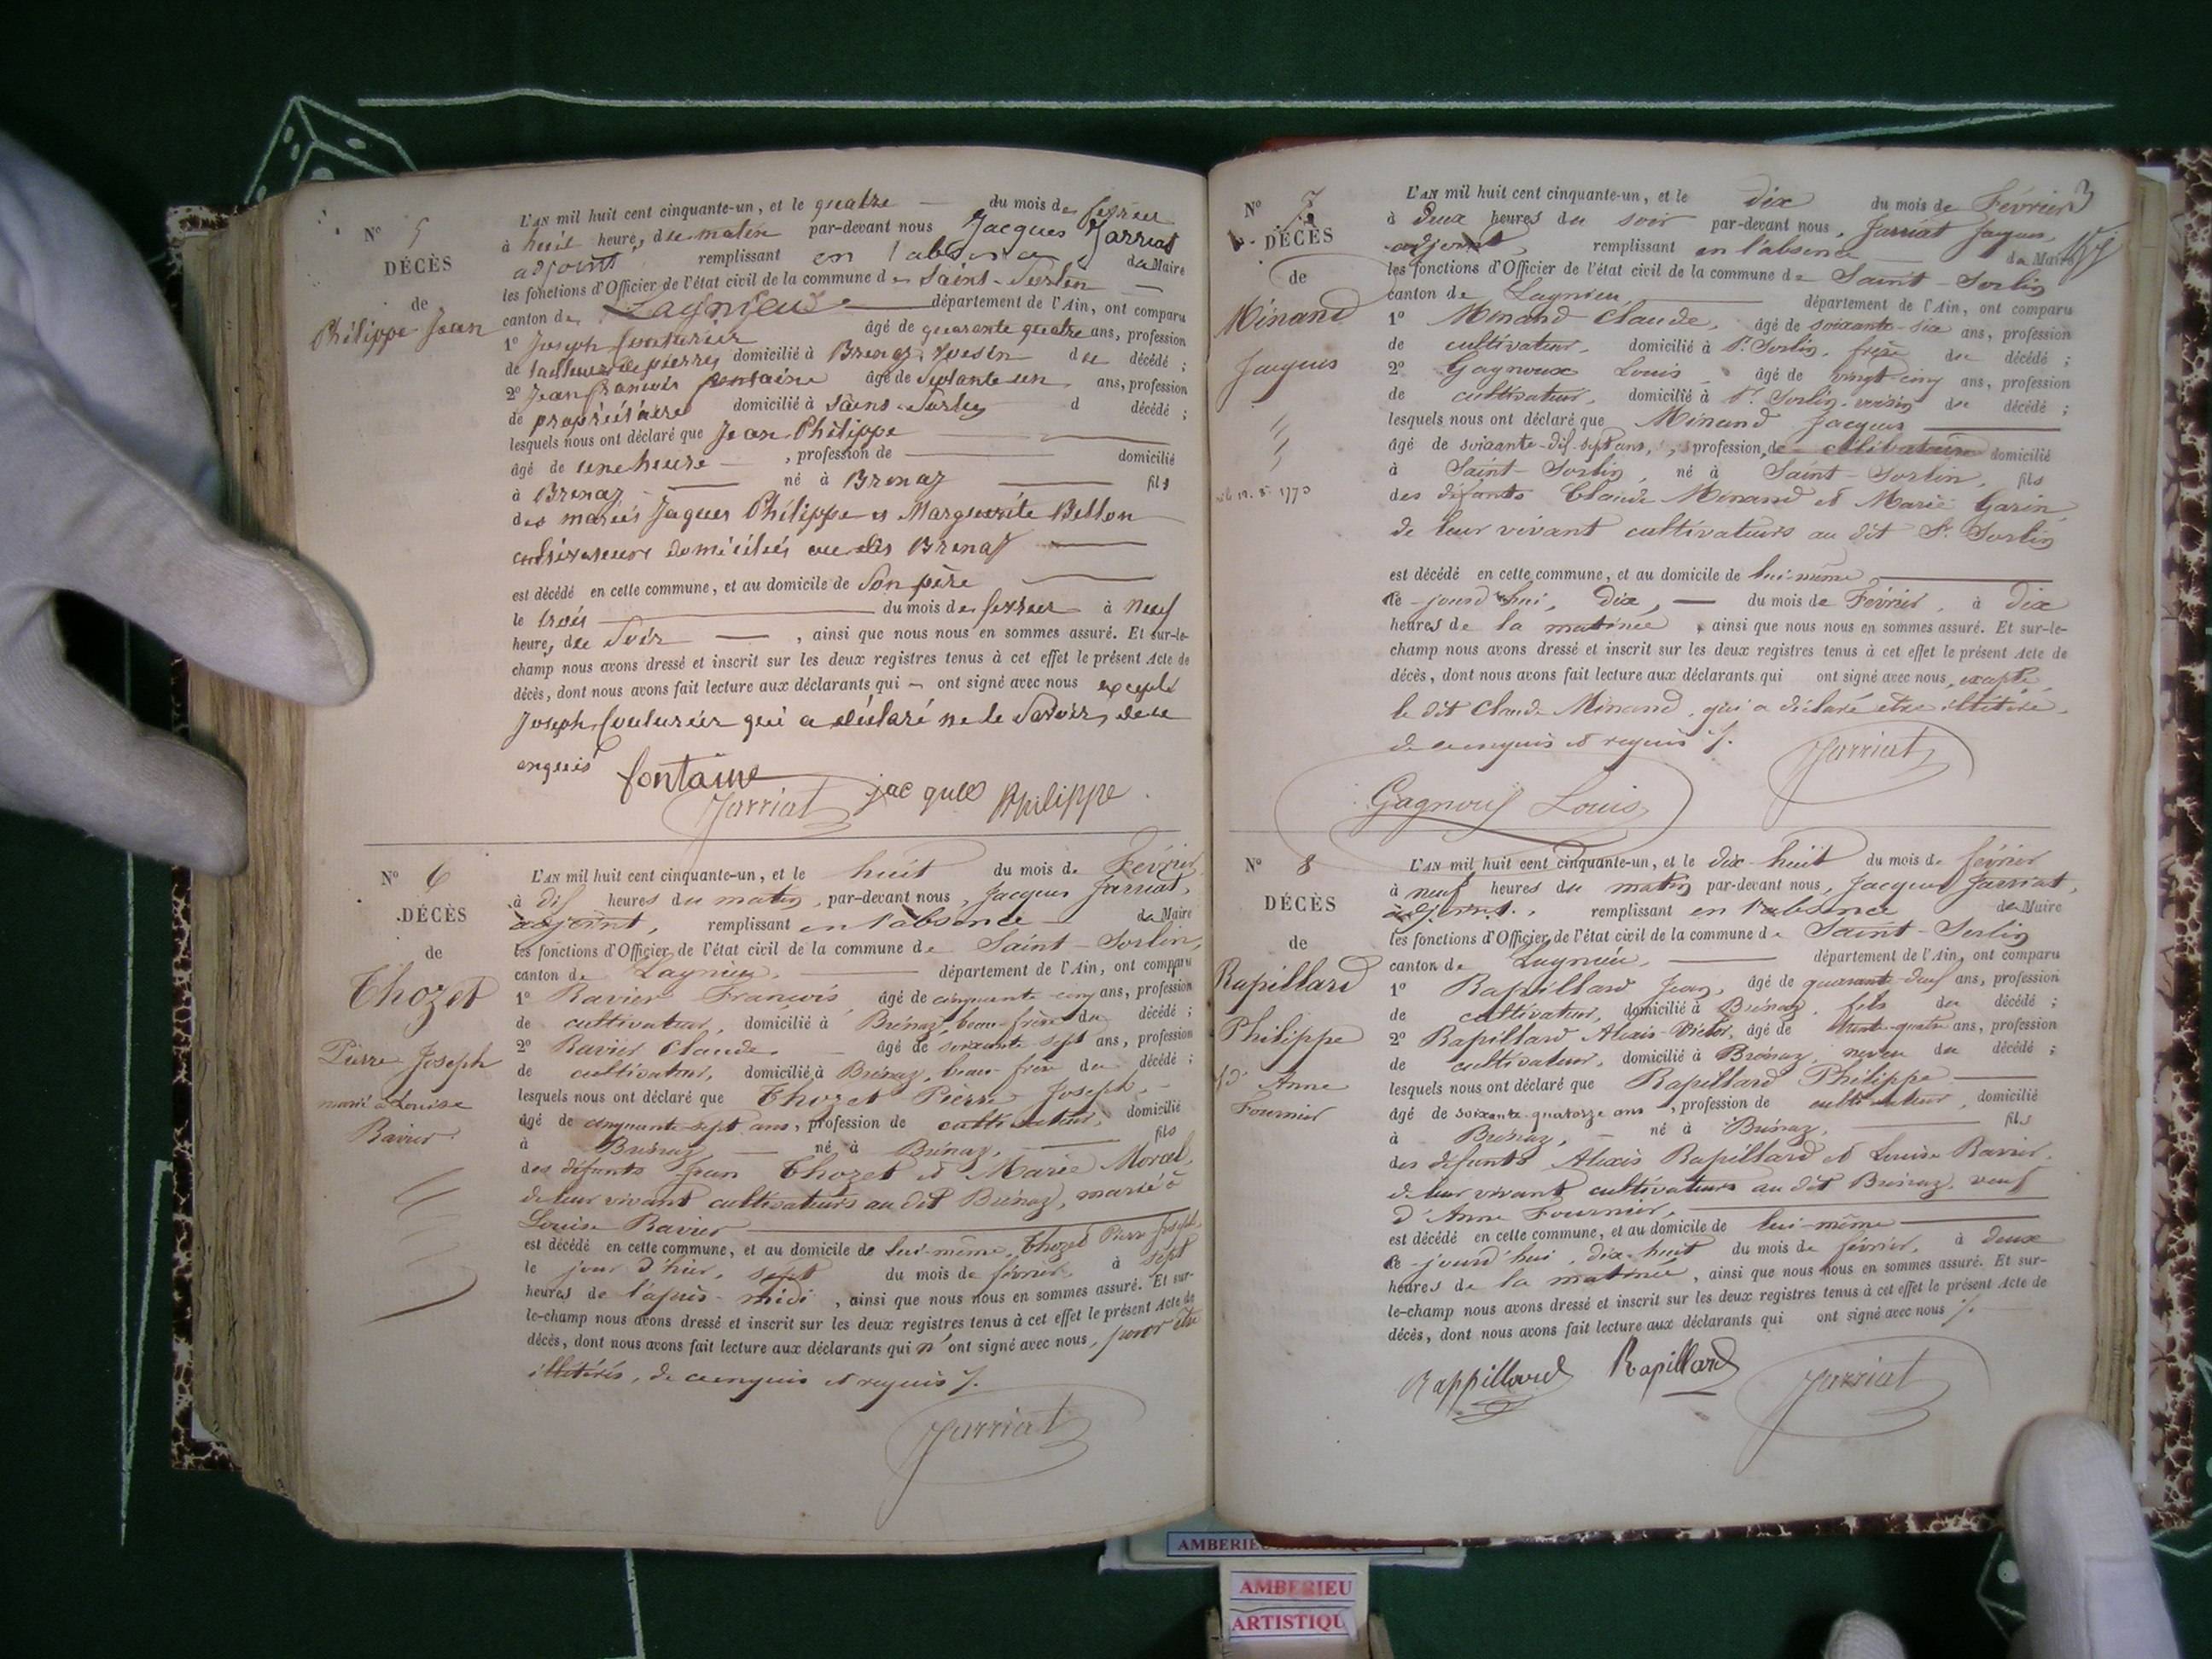 N° 5
DÉCÈS
de
Philippe Jean
L'AN mil huit cent cinquante-un, et le quatre du mois de fevrier
à huit heure, du matin par-devant nous Jacques Jarriat
adjoint remplissant en l'absence du Maire
les fonctions d'Officier de l'état civil de la commune de Saint-Sorlin
canton de Lagnieu département de l'Ain, ont comparu
1° Joseph Couturier âgé de quarante quatre ans, profession
de tailleur de pierres domicilié à Brenaz, voisin du décédé ;
2° Jean francois fontaine âgé de Septante un ans, profession
de propriétaire domicilié à Saint-Sorlin d décédé ;
lesquels nous ont déclaré que Jean Philippe
âgé de une heure , profession de domicilié
à Brenaz né à Brenaz fils
des mariés Jaques Philippe et Marguerite Bellon
cultivateurs domiciliés au dit Brenaz
est décédé en cette commune, et au domicile de Son père
le trois du mois de fevrier à neuf
heure, du Soir , ainsi que nous nous en sommes assuré. Et sur-le-
champ nous avons dressé et inscrit sur les deux registres tenus à cet effet le présent Acte de
décès, dont nous avons fait lecture aux déclarants qui ont signé avec nous excepté
Joseph Couturier qui a déclaré ne le Savoir, de ce
enquis
fontaine
Jarriat jacques Philippe
N° 6
DÉCÈS
de
Thozet
Pierre Joseph
marié à Louise
Ravier
L'AN mil huit cent cinquante-un, et le huit du mois de Février
à dix heures du matin, par-devant nous, Jacques Jarriat,
adjoint, remplissant en l'absence du Maire
les fonctions d'Officier de l'état civil de la commune de Saint-Sorlin,
canton de Lagnieu, département de l'Ain, ont comparu
1° Ravier Francois âgé de cinquante-cinq ans, profession
de cultivateur, domicilié à Brénaz, beau-frère du décédé ;
2° Ravier Claude. âgé de soixante sept ans, profession
de cultivateur, domicilié à Brénaz, beau-frère du décédé ;
lesquels nous ont déclaré que Thozet Pierre Joseph,
âgé de cinquante-sept ans, profession de cultivateur, domicilié
à Brénaz, né à Brénaz, fils
des défunts Jean Thozet et Marie Morel,
de leur vivant cultivateurs au dit Brénaz, marié à
Louise Ravier
est décédé en cette commune, et au domicile de lui-même, Thozet Pierre Joseph,
le jour d'hier, sept du mois de février, à sept
heures de l'après-midi , ainsi que nous nous en sommes assuré. Et sur-
le-champ nous avons dressé et inscrit sur les deux registres tenus à cet effet le présent Acte de
décès, dont nous avons fait lecture aux déclarants qui n'ont signé avec nous, pour être
illitérés, de ce enquis et requis /.
Jarriat
N° 7
DÉCÈS
de
Minand
Jacques
1773
L'AN mil huit cent cinquante-un, et le dix du mois de Février 3
à deux heures du soir par-devant nous, Jarriat Jacques,
adjoint, remplissant en l'absence du Maire
les fonctions d'Officier de l'état civil de la commune de Saint-Sorlin
canton de Lagnieu, département de l'Ain, ont comparu
1° Minand Claude, âgé de soixante-six ans, profession
de cultivateur, domicilié à St. Sorlin, frère du décédé ;
2° Gagnoux Louis, âgé de vingt-cinq ans, profession
de cultivateur, domicilié à St. Sorlin, voisin du décédé ;
lesquels nous ont déclaré que Minand Jacques
âgé de soixante-dix-sept ans, profession de célibataire domicilié
à Saint-Sorlin, né à Saint-Sorlin, fils
des défunts Claude Minand et Marie Garin,
de leur vivant cultivateurs au dit St. Sorlin
est décédé en cette commune, et au domicile de lui-même
ce-jourd'hui, dix, du mois de Février, à dix
heures de la matinée , ainsi que nous nous en sommes assuré. Et sur-le-
champ nous avons dressé et inscrit sur les deux registres tenus à cet effet le présent Acte de
décès, dont nous avons fait lecture aux déclarants qui ont signé avec nous, excepté
le dit Claude Minand, qui a déclaré être illitéré,
de ce enquis et requis /.
Jarriat
Gagnoux Louis
N° 8
DÉCÈS
de
Rapillard
Philippe
Vf d'Anne
Fournier
L'AN mil huit cent cinquante-un, et le dix-huit du mois de février
à neuf heures du matin par-devant nous, Jacques Jarriat,
adjoint, remplissant en l'absence du Maire
les fonctions d'Officier de l'état civil de la commune de Saint-Sorlin
canton de Lagnieu, département de l'Ain, ont comparu
1° Rapillard Jean, âgé de quarante-deux ans, profession
de cultivateur, domicilié à Brénaz, fils du décédé ;
2° Rapillard Alexis-Victor, âgé de trente-quatre ans, profession
de cultivateur, domicilié à Brénaz, neveu du décédé ;
lesquels nous ont déclaré que Rapillard Philippe
âgé de soixante-quatorze ans , profession de cultivateur, domicilié
à Brénaz, né à Brénaz, fils
des défunts Alexis Rapillard et Louise Ravier,
de leur vivant cultivateurs au dit Brénaz, veuf
d'Anne Fournier,
est décédé en cette commune, et au domicile de lui-même
ce-jourd'hui, dix-huit du mois de février, à deux
heures de la matinée , ainsi que nous nous en sommes assuré. Et sur-
le-champ nous avons dressé et inscrit sur les deux registres tenus à cet effet le présent Acte de
décès, dont nous avons fait lecture aux déclarants qui ont signé avec nous /.
Rappillard Rapillard Jarriat
AMBERIEU
ARTISTIQU